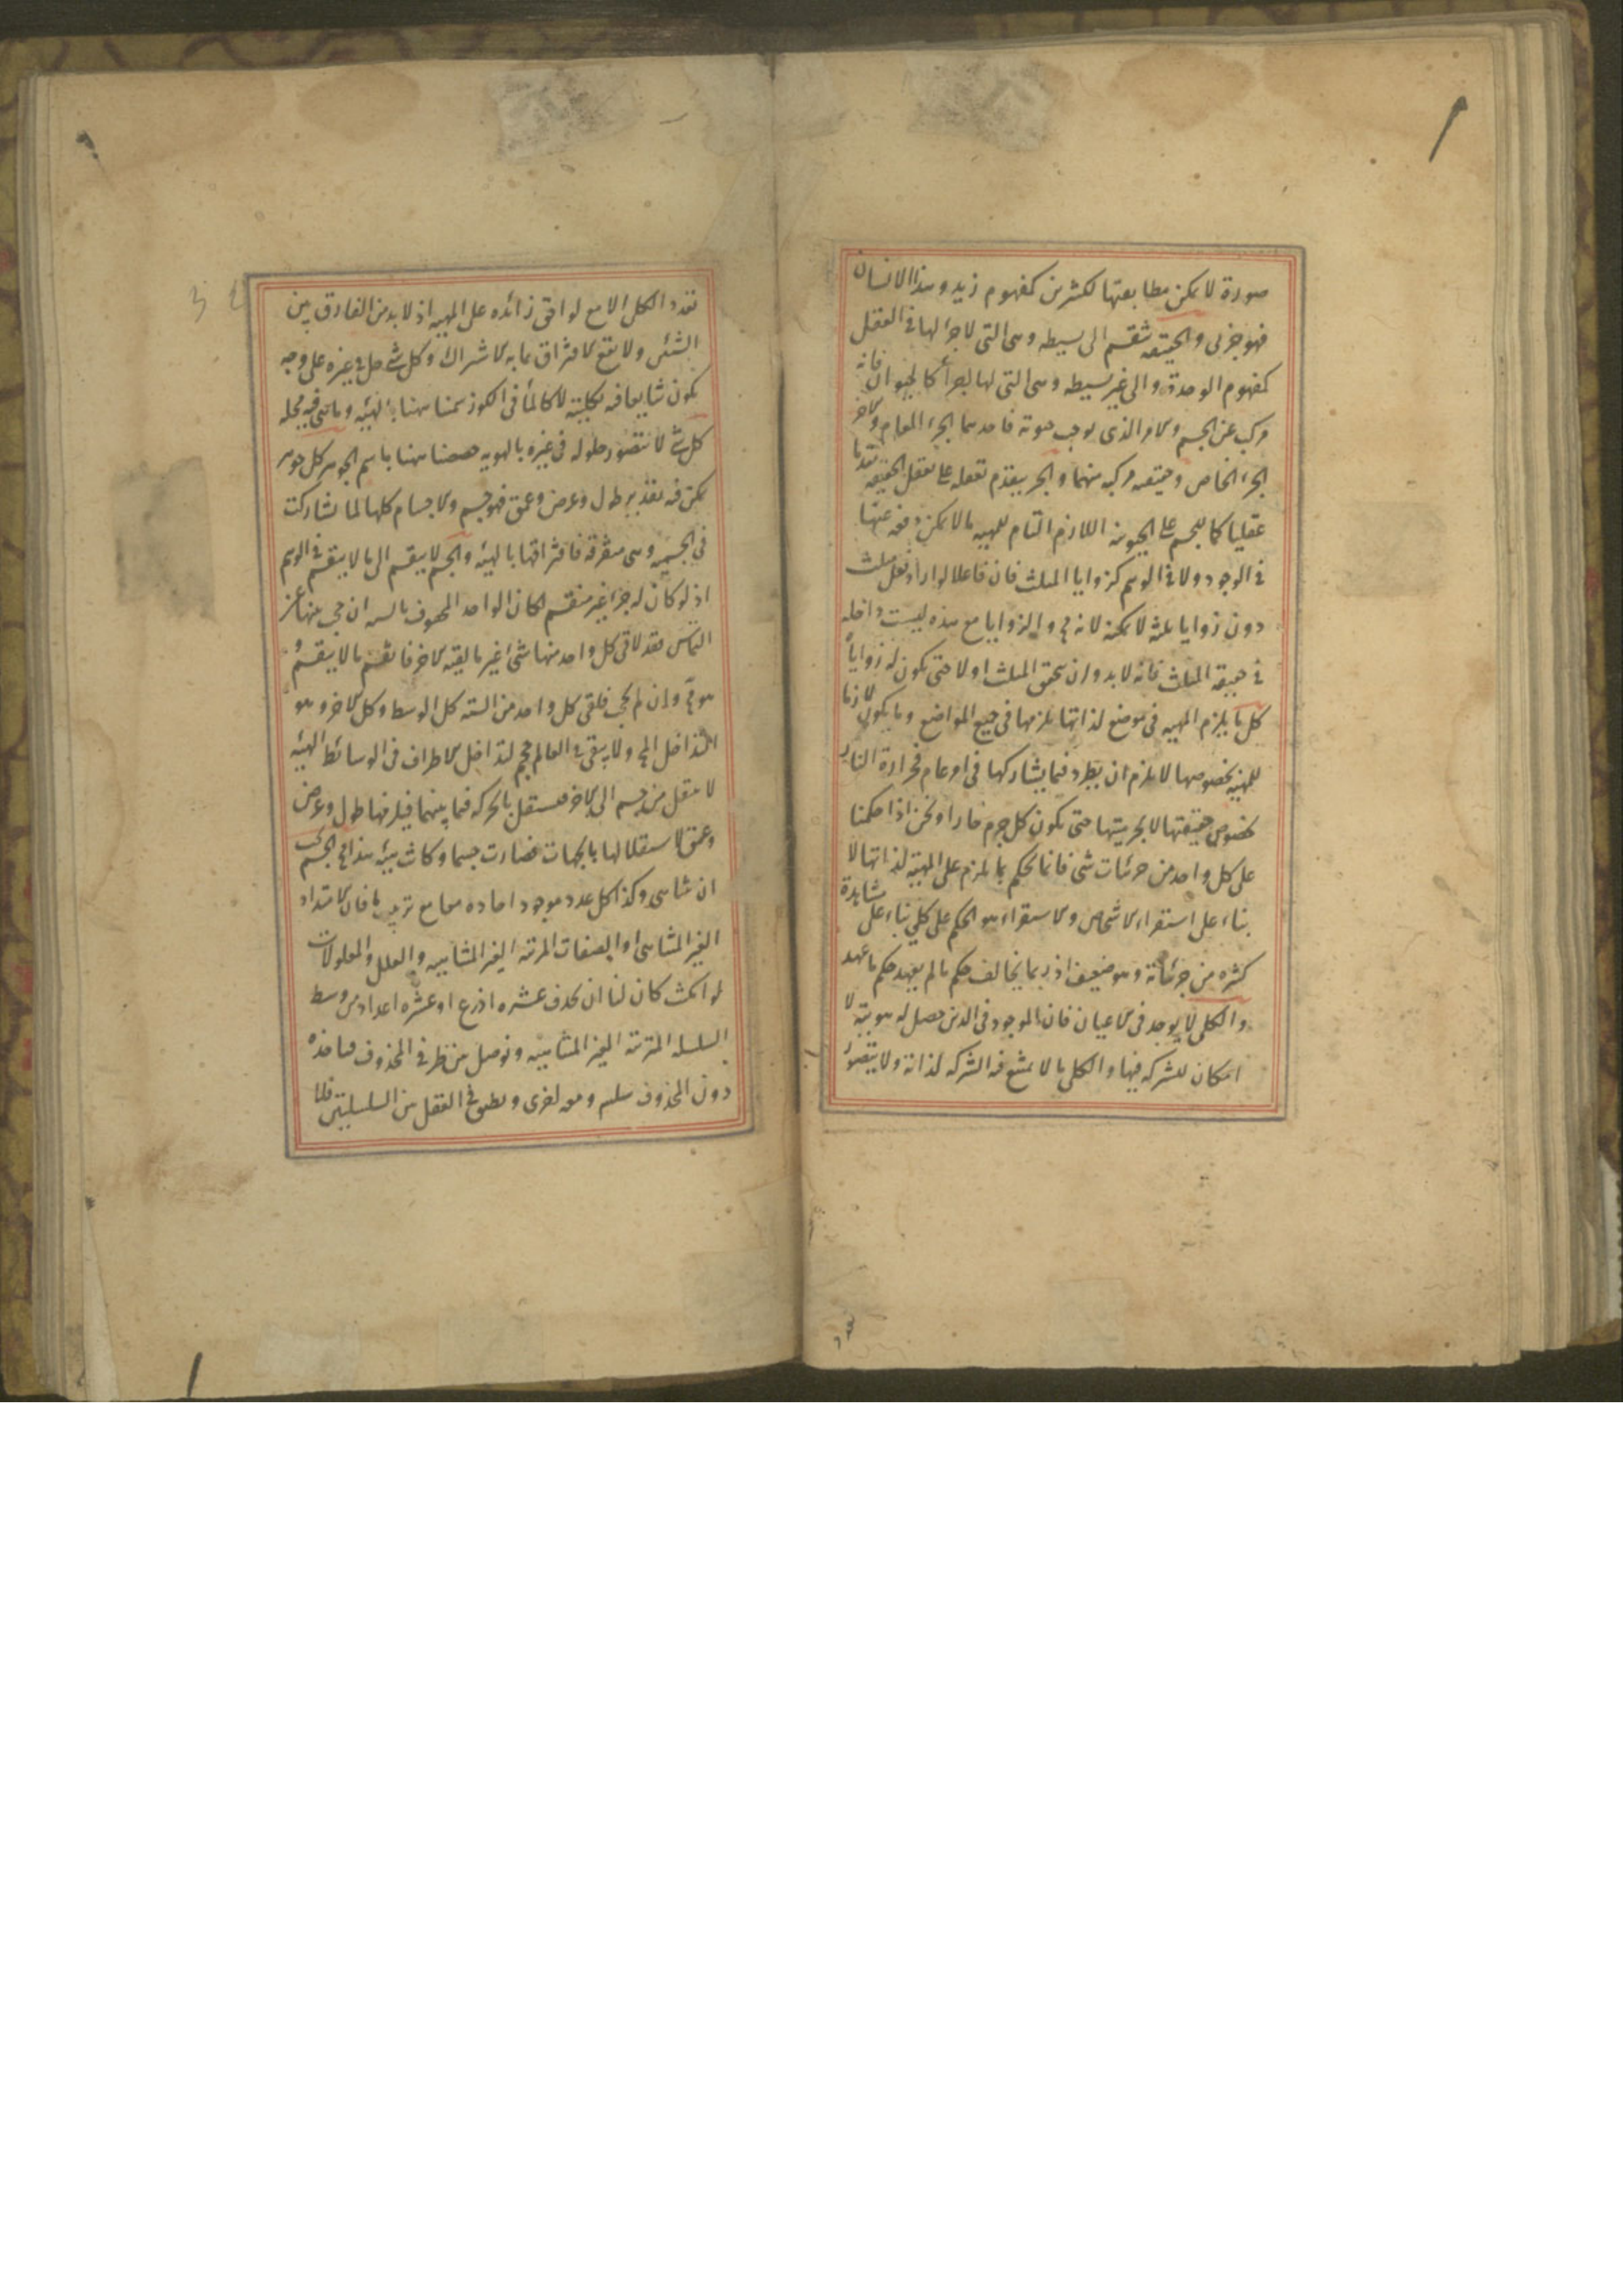 صورة لا يمكن مطابقتها لكثيرين كمفهوم زيد وهذا الانسان
فهو جزئى والحقيقة تنقسم الى بسيطه وهى التى لا جزء لها فى العقل
كمفهوم الوحدة والى غير بسيطه وهى التى لها اجزأ كالحيوان فانه
مركب عن الجسم والامر الذى يوجب حيوته فاحدهما الجزء العام والآخر
الجزء الخاص وحقيقه مركبه منهما والجزء يتقدم تعقله على تعقل الحقيقه تقدما
عقليا كما للجسم على الحيوان اللازم التام للمهيه ما لا يمكن دفعه عنها
فى الوجود ولا فى الوهم كزوايا المثلث فان فاعلا لو اراد فعل مثلث
دون زوايا ثلثه لا يمكنه لانه مح والزوايا مع هذه ليست داخله
فى حقيقه المثلث فانه لا بد وان يتحقق المثلث اولا حتى يكون له زوايا
كل ما يلزم المهيه فى موضع لذاتها يلزمها فى جميع المواضع وما يكون لازما
للمهيه بخصوصها لا يلزم ان يطرد فيما يشاركها فى امر عام فحرارة النار
لخصوص حقيقتها لا لجرميتها حتى يكون كل جرم حارا ونحن اذا حكمنا
على كل واحد من جزئيات شئ فانما نحكم بما يلزم على المهية لذاتها لا
بناء على استقراء الاشخاص والاستقراء هو الحكم على كلى بناء على مشاهدة
كثره من جزئياته وهو ضعيف اذ ربما يخالف حكم ما لم يعهد حكم ما عهد
والكلى لا يوجد فى الاعيان فان الموجود فى الذى حصل له هوية لا
امكان للشركه فيها والكلى ما لا يمتنع فيه الشركه لذاته ولا يتصور
تعدد الكلى الا مع لواحق زائده على المهيه اذ لا بد من الفارق بين
الشيئين ولا يقع الافتراق بما به الاشتراك وكل شئ حل فى غيره على وجه
يكون شايعا فيه بكليته لا كالماء فى الكوز سميناه هنا بالهيئه وما هى فيه محله
كل شئ لا يتصور حلوله فى غيره بالهويه خصصناه هنا باسم الجوهر كل جوهر
يمكن فيه تقدير طول وعرض وعمق فهو جسم والاجسام كلها لما تشاركت
فى الجسميه وهى متفرقه فافتراقها بالهيئه والجسم لا ينقسم الى ما لا ينقسم فى الوهم
اذ لو كان له جزء غير منقسم لكان الواحد المحفوف بالسته ان حجب بينها عن
التماس فقد لاقى كل واحد منها شئ غير ما لقيه الآخر فانقسم ما لا ينقسم و
هو مح وان لم يحجب فلقى كل واحد من السته كل الوسط وكل الآخر وهو
التداخل المح ولا يبقى فى العالم حجم لتداخل الاطراف فى الوسائط الهيئه
لا تنتقل من جسم الى الآخر فتستقل بالحركه فيما بينهما فيلزمها طول وعرض
وعمق لاستقلالها بالجهات فصارت جسما وكانت هيئه هذا مح الجسم يجب
ان يتناهى وكذا كل عدد موجود احاده معا مع ترتيب ما فان الامتداد
الغير المتناهى او الصفات المرتبه الغير المتناهيه والعلل والمعلولات
لو امكنت كان لنا ان نحذف عشره اذرع او عشره اعداد من وسط
السلسله المترتبه الغير المتناهيه ونوصل بين طرفى المحذوف فناخذه
دون المحذوف سلسله ومعه اخرى ونطبق فى العقل بين السلسلتين فلا